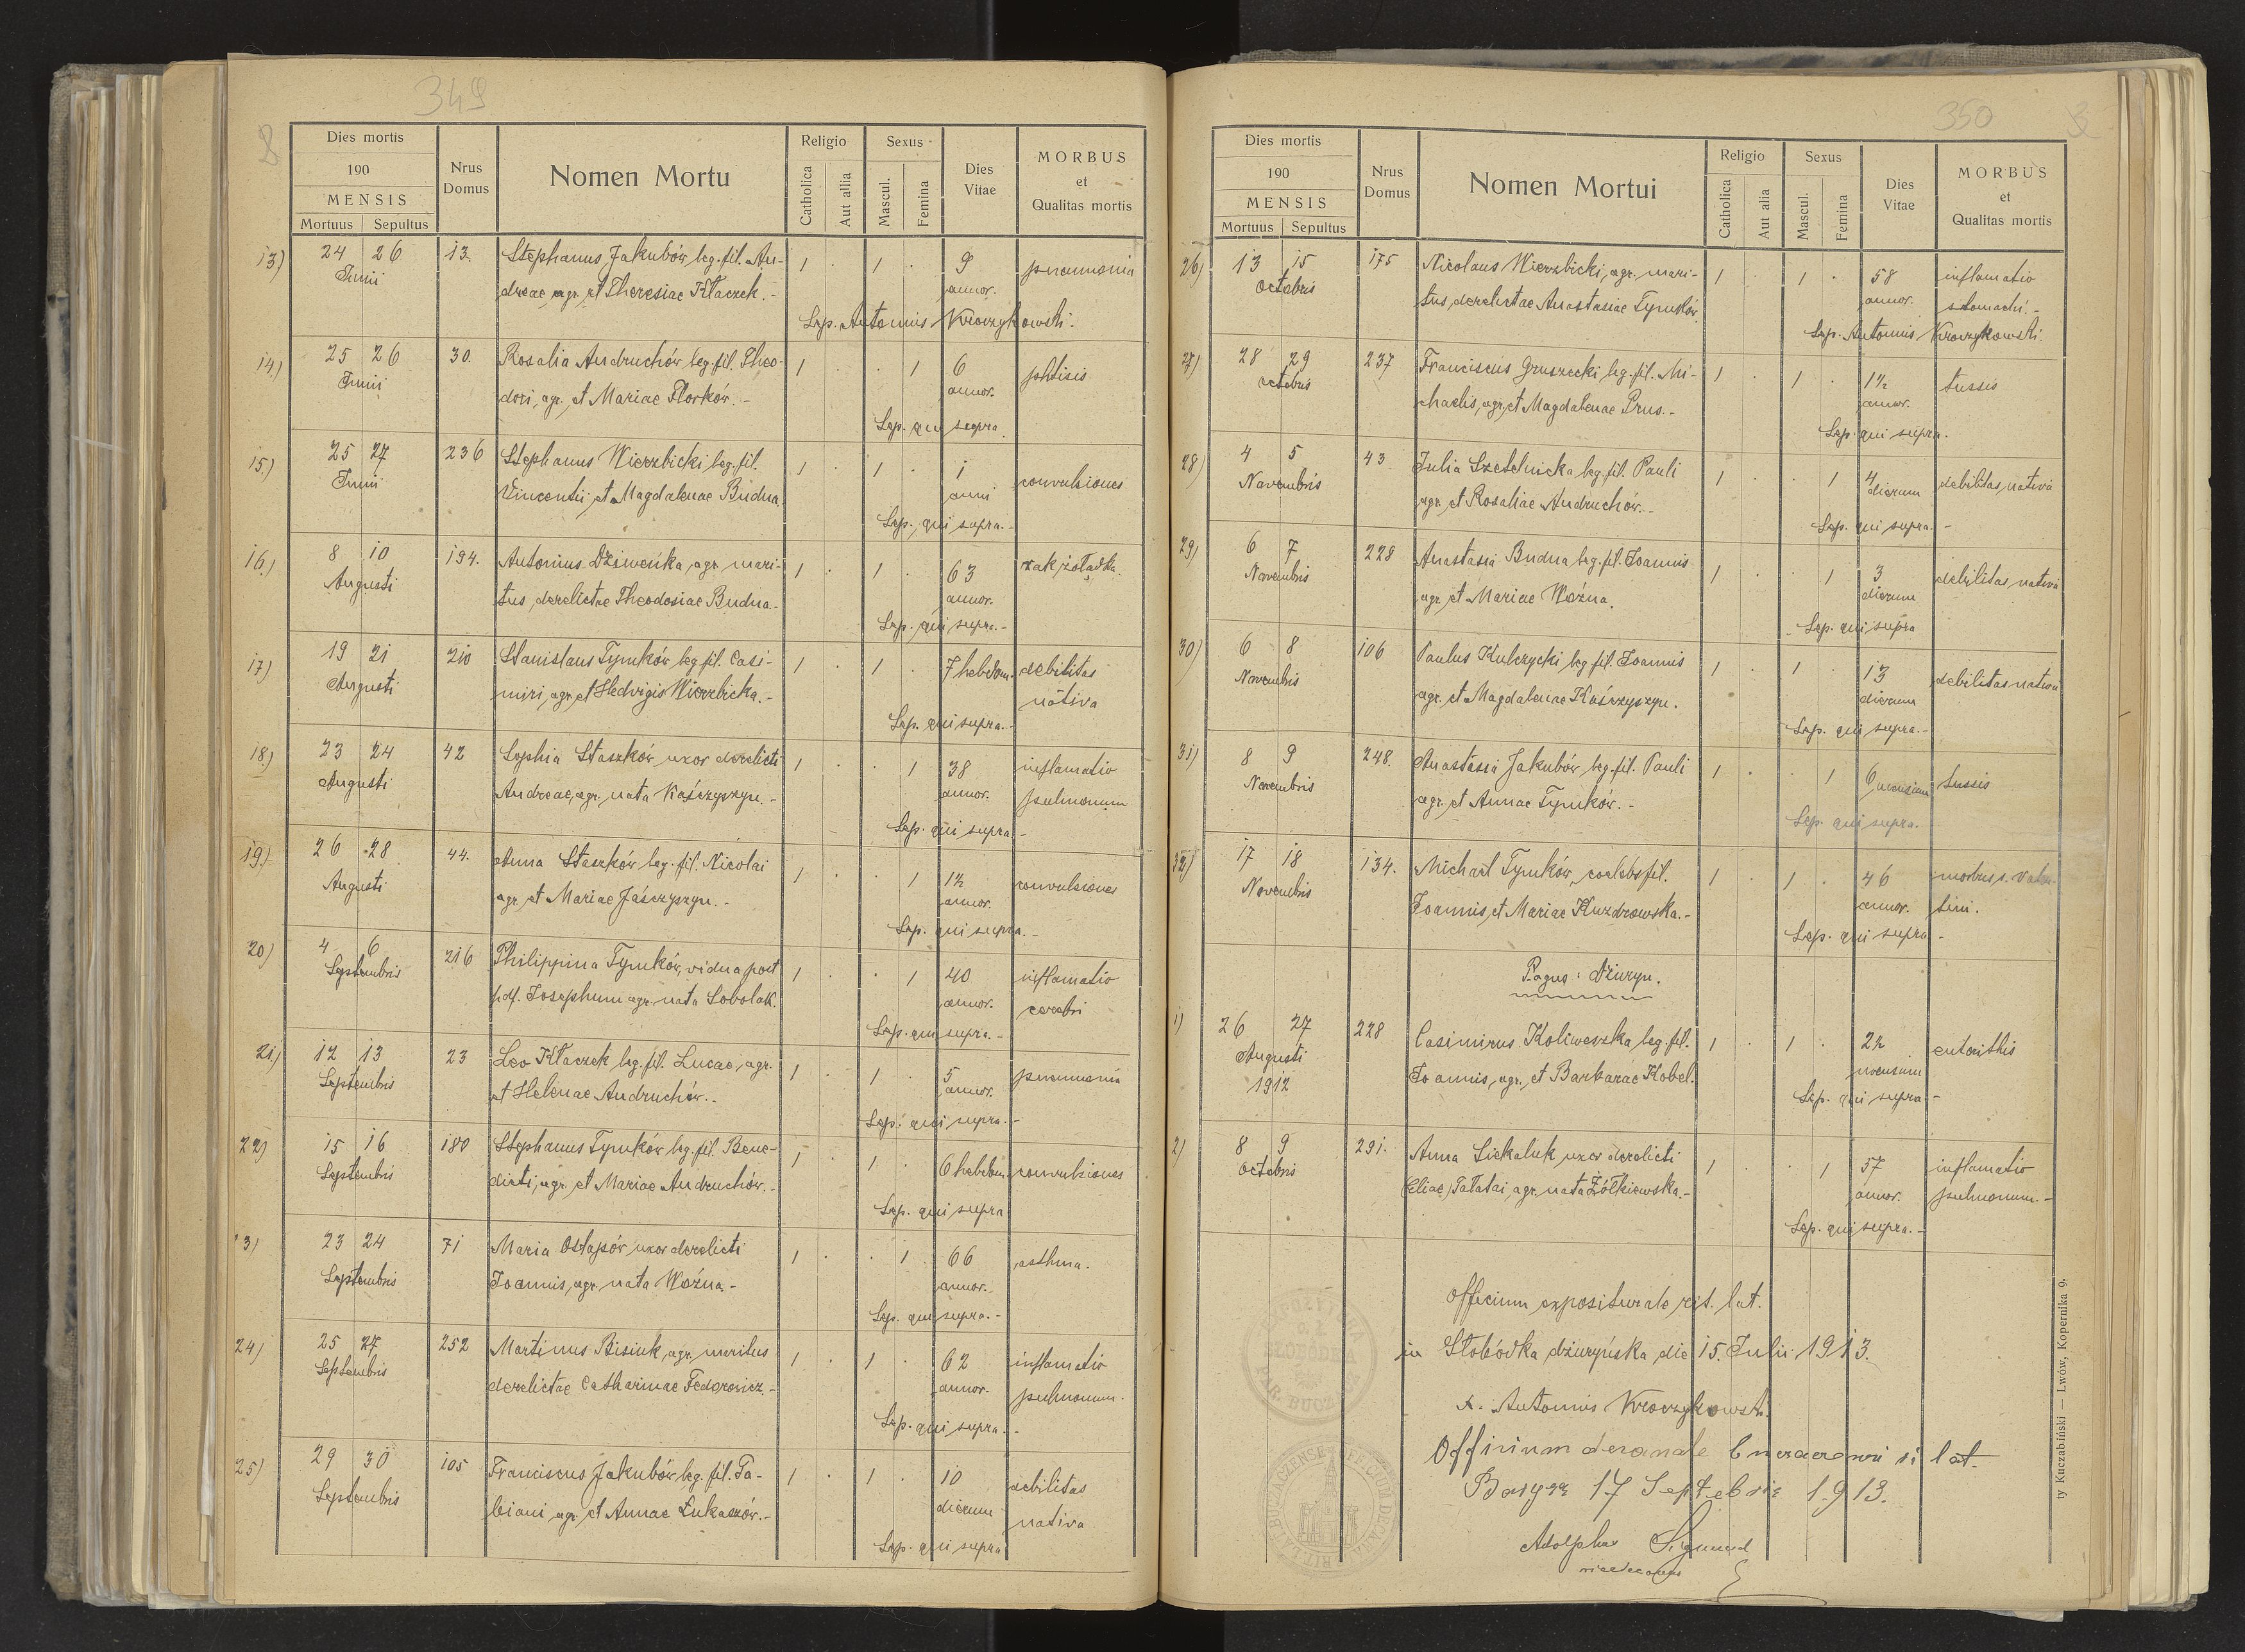 349
8
Dies mortis
190
MENSIS
Mortuus Sepultus
Nrus Domus
Nomen Mortu
Religio
Catholica
Aut allia
Sexus
Mascul.
Femina
Dies Vitae
MORBUS
et
Qualitas mortis
13) 24 26 13. Stephanus Jakubów leg. fil. An- 1 . 1 . 9 pneumonia
Junii dreae, agr. et Theresiae Kłaczek. - annor.
Sep. Antonius Krowzykowski.
14) 25 26 30. Rosalia Andruchów leg. fil. Theo- 1 . . 1 6 phtisis
Junii dori, agr. et Mariae Florków. - annor.
Sep. qui supra
15.) 25 27 236 Stephanus Wierzbicki leg. fil. 1 . 1 . 1 convulsiones
Junii Vincentii et Magdalenae Budna. anni
Sep. qui supra. -
16.) 8 10 194. Antonius Dziweńka, agr. mari- 1 . 1 . 63 rak żołądka.
Augusti tus, derelictae Theodosiae Budna. annor.
Sep. qui supra. -
17) 19 21 210 Stanislaus Tymków leg. fil. Casi- 1 . 1 . 7 hebdom. debilitas
Augusti miri, agr. et Hedvigis Wierzbicka. - nativa
Sep. qui supra. -
18.) 23 24 42 Sophia Staszków uxor derelicti 1 . . 1 38 inflamatio
Augusti Andreae, agr. nata Kaśczyszyn. - annor. pulmonum
Sep. qui supra. -
19) 26 28 44. Anna Staszków leg. fil. Nicolai 1 . . 1 1½ convulsiones
Augusti agr. et Mariae Jaśczyszyn. - annor.
Sep. qui supra. -
20) 4 6 216 Philippina Tymków, vidua post 1 . . 1 40 inflamatio
Septembris pdf. Josephum agr. nata Sobolak. annor. cerebri
Sep. qui supra. -
21.) 12 13 23 Leo Kłaczek leg. fil. Lucae, agr. 1 . 1 . 5 pneumonia
Septembris et Helenae Andruchów. - annor.
Sep. qui supra. -
22) 15 16 180 Stephanus Tymków leg. fil. Bene- 1 . 1 . 6 hebdom. convulsiones
Septembris dicti, agr. et Mariae Andruchów. -
Sep. qui supra
3) 23 24 71 Maria Ostapów, uxor derelicti 1 . . 1 66 asthma.
Septembris Joannis, agr. nata Woźna. - annor.
Sep. qui supra. -
24) 25 27 252 Martinus Bisiuk, agr. maritus 1 . 1 . 62 inflamatio
Septembris derelictae Catharinae Fedorowicz. - annor. pulmonum.
Sep. qui supra. -
25) 29 30 105 Franciscus Jakubów leg. fil. Fa- 1 . 1 . 10 debilitas
Septembris biani, agr. et Annae Łukaszów. - dierum nativa
Sep. qui supra
350
Dies mortis
190
MENSIS
Mortuus Sepultus
Nrus Domus
Nomen Mortui
Religio
Catholica
Aut alia
Sexus
Mascul.
Femina
Dies Vitae
MORBUS
et
Qualitas mortis
26) 13 15 175 Nicolaus Wierzbicki, agr. mari- 1 . 1 . 58 inflamatio
Octobris tus, derelictae Anastasiae Tymków. annor. stomachi. -
Sep. Antonius Krowzykowski.
27) 28 29 237 Franciscus Gruszecki leg. fil. Mi- 1 . 1 . 1½ tussis
Octobris chaelis, agr. et Magdalenae Prus. - annor.
Sep. qui supra.
28) 4 5 43 Julia Szetelnicka leg. fil. Pauli 1 . . 1 4 debilitas nativa
Novembris agr. et Rosaliae Andruchów. - dierum
Sep. qui supra. -
29) 6 7 228 Anastasia Budna leg. fil. Joannis 1 . . 1 3 debilitas nativa
Novembris agr. et Mariae Woźna. dierum
Sep. qui supra
30) 6 8 106 Paulus Kulczycki leg. fil. Joannis 1 . 1 . 13 debilitas nativa
Novembris agr. et Magdalenae Kaśczyszyn. dierum
Sep. qui supra. -
31) 8 9 248. Anastasia Jakubów leg. fil. Pauli 1 . . 1 6 mensium tussis
Novembris agr. et Annae Tymków. -
Sep. qui supra.
32) 17 18 134. Michael Tymków, coelebs fil. 1 . 1 . 46 morbus s. Valen-
Novembris Joannis, et Mariae Kuzdrowska. - annor. tini.
Sep. qui supra -
Pagus: Dżuryn.
1) 26 27 228 Casimirus Koliweszka leg. fil. 1 . 1 . 2½ enteritis
Augusti Joannis, agr. et Barbarae Kobel. mensium
1912
Sep. qui supra. -
2) 8 9 291. Anna Siekaluk uxor derelicti 1 . . 1 57 inflamatio
Octobris Eliae, Tatatai, agr. nata Żółkiewska. - annor. pulmonum. -
Sep. qui supra. -
Officium expositurale rit. lat.
in Słobódka dżuryńska die 15. Julii 1913.
X. Antonius Krowzykowski.
Officium decanale Buczaczense rit. lat.
17 Septebris 1913.
Adolphus Sigmund
vicedecanus
ty Kuczabiński — Lwów, Kopernika 9.